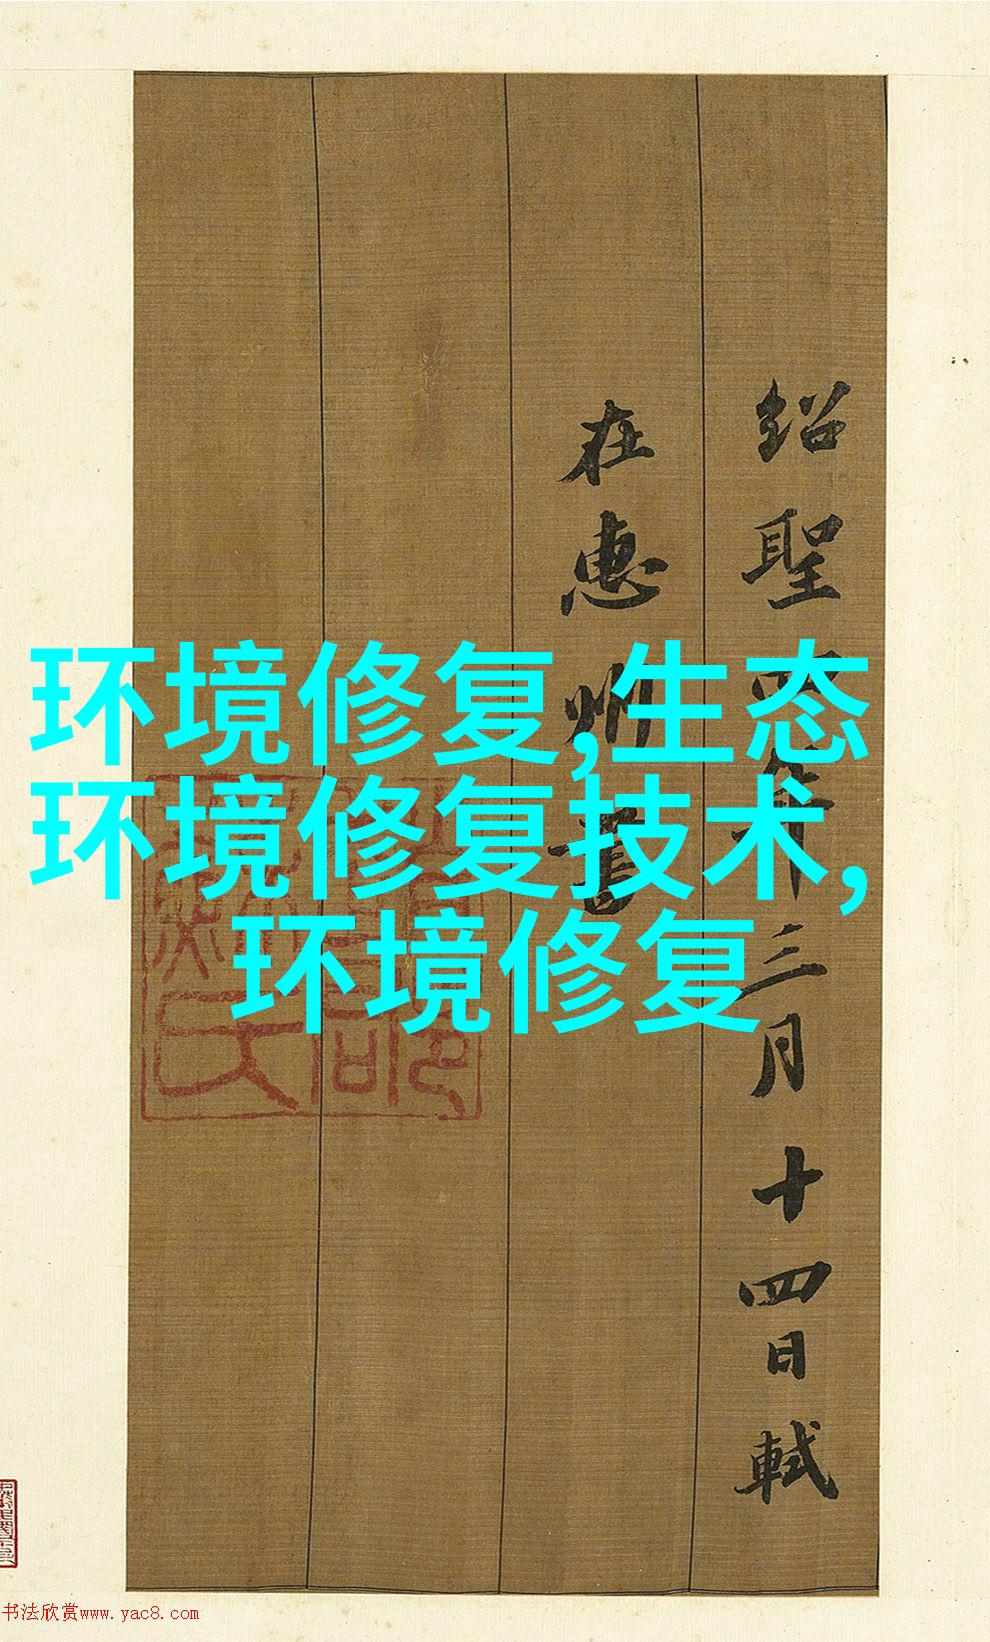 绍聖四年三月十四日軾
在惠州書
环境修复,生态
环境修复技术,
环境修复
书法欣赏www.yac8.com